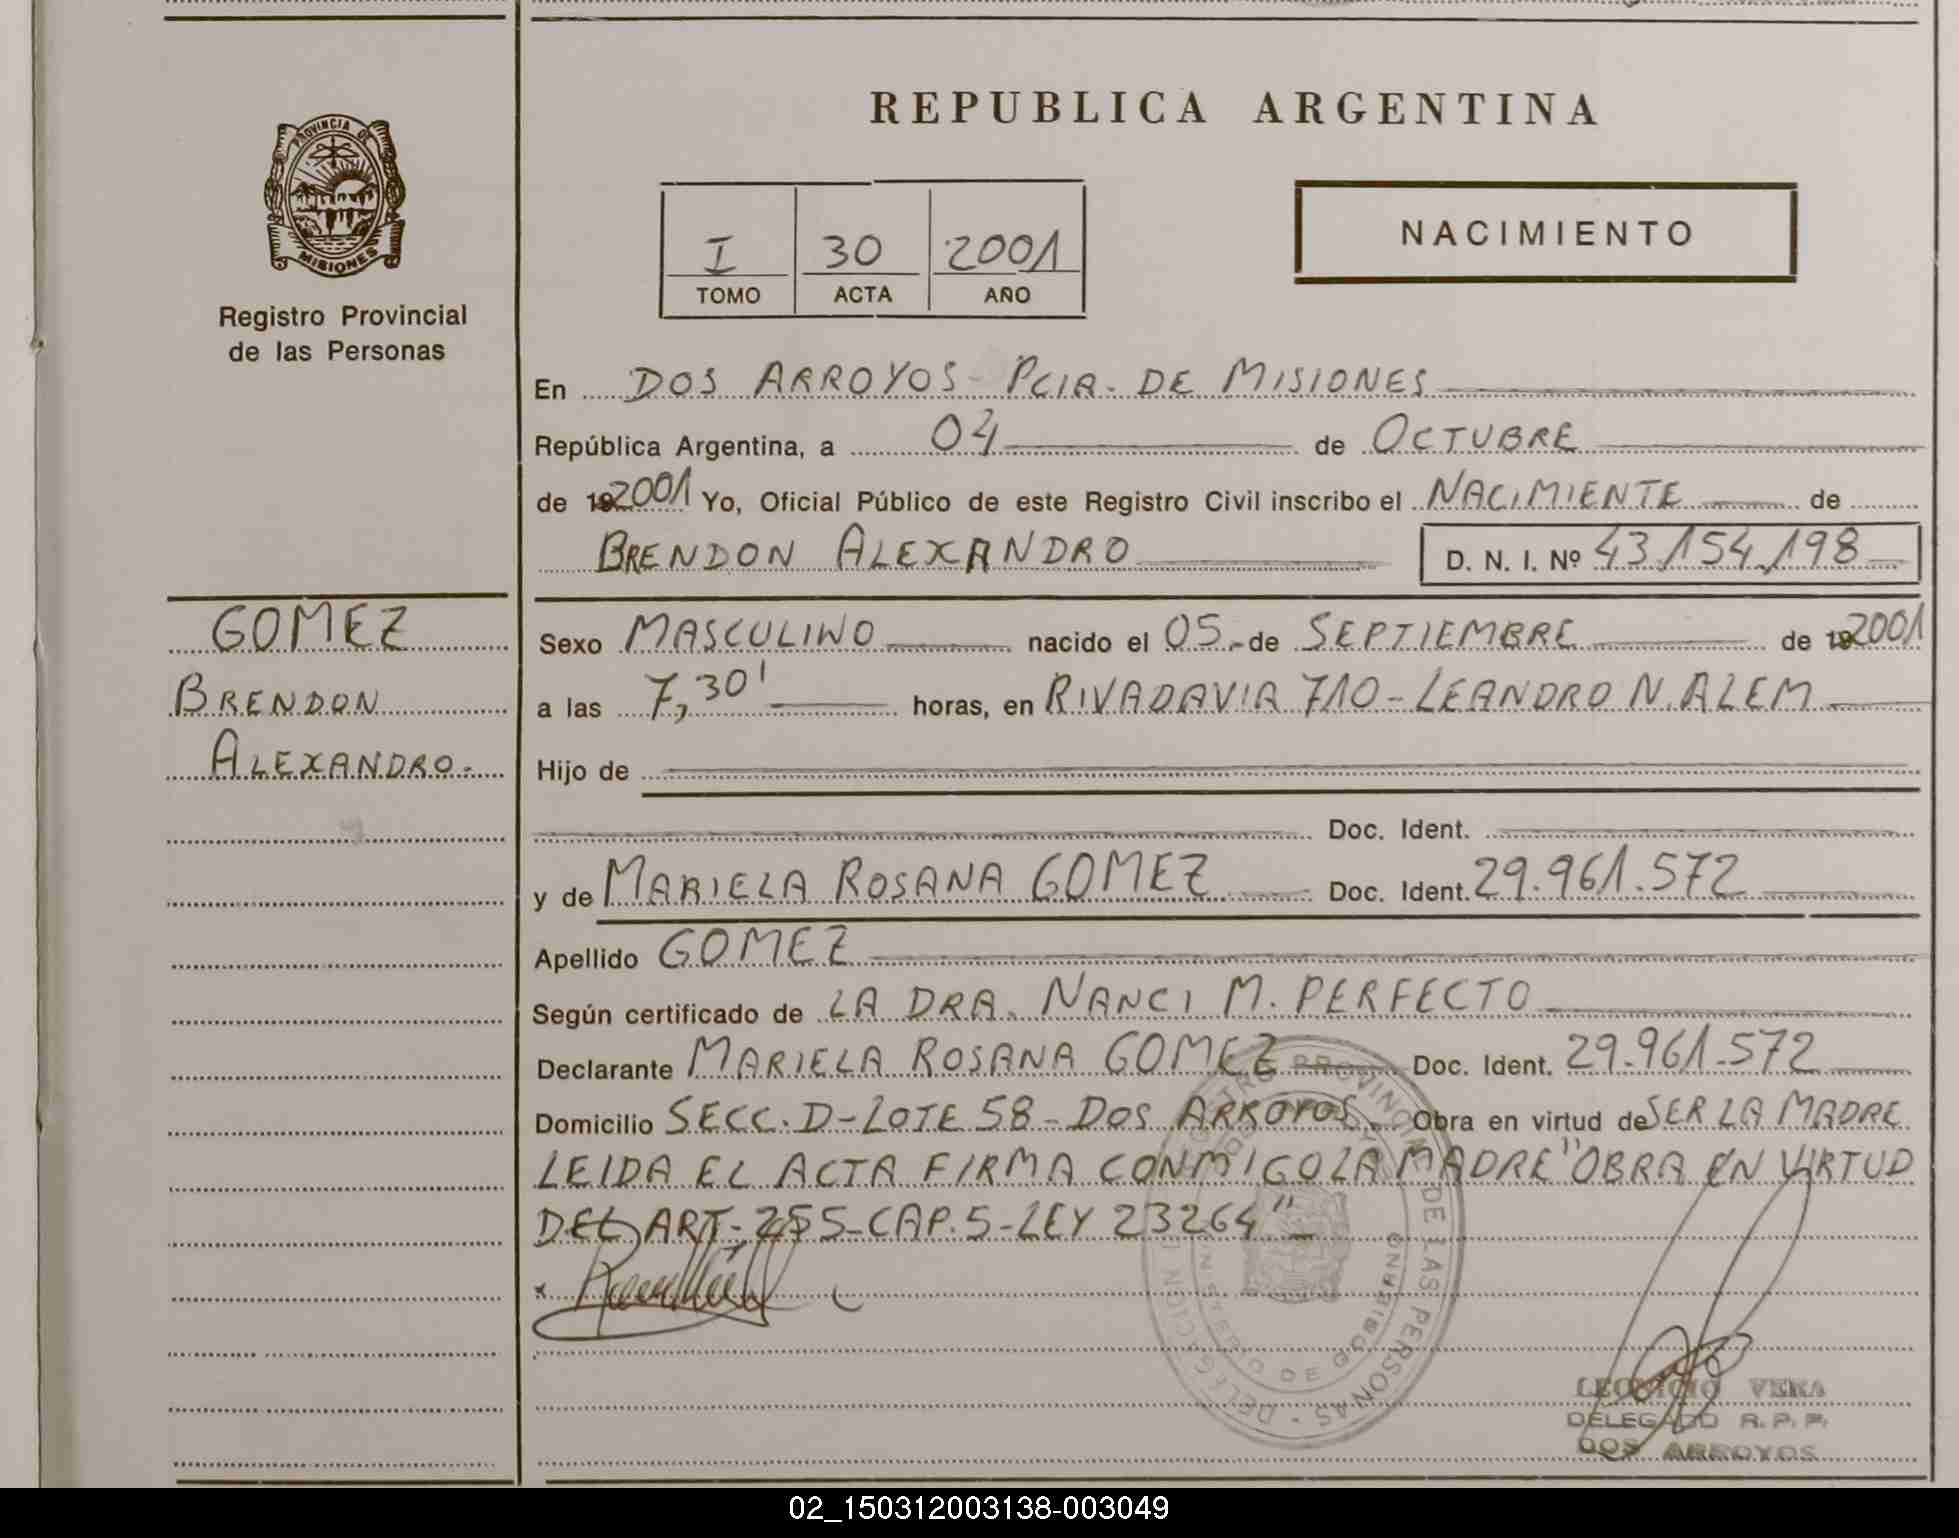 REPUBLICA ARGENTINA
PROVINCIA DE
MISIONES
Registro Provincial
de las Personas
I 30 2001
TOMO ACTA AÑO
NACIMIENTO
En DOS ARROYOS - PCIA. DE MISIONES
República Argentina, a 04 de OCTUBRE
de 192001 Yo, Oficial Público de este Registro Civil inscribo el NACIMIENTE de
BRENDON ALEXANDRO D. N. I. Nº 43,154,198
GOMEZ
BRENDON
ALEXANDRO.
Sexo MASCULINO nacido el 05.- de SEPTIEMBRE de 192001
a las 7,30' horas, en RIVADAVIA 710 - LEANDRO N. ALEM
Hijo de
Doc. Ident.
y de MARIELA ROSANA GOMEZ Doc. Ident. 29.961.572
Apellido GOMEZ
Según certificado de LA DRA. NANCI M. PERFECTO
Declarante MARIELA ROSANA GOMEZ Doc. Ident. 29.961.572
Domicilio SECC. D - LOTE 58 - DOS ARROYOS. Obra en virtud de SER LA MADRE
LEIDA EL ACTA FIRMA CONMIGO LA MADRE "OBRA EN VIRTUD
DEL ART. 255 - CAP. 5 - LEY 23264"
REGISTRO PROVINCIAL DE LAS PERSONAS - DELEGACION
LEONICIO VERA
DELEGADO R. P. P.
DOS ARROYOS
02_150312003138-003049